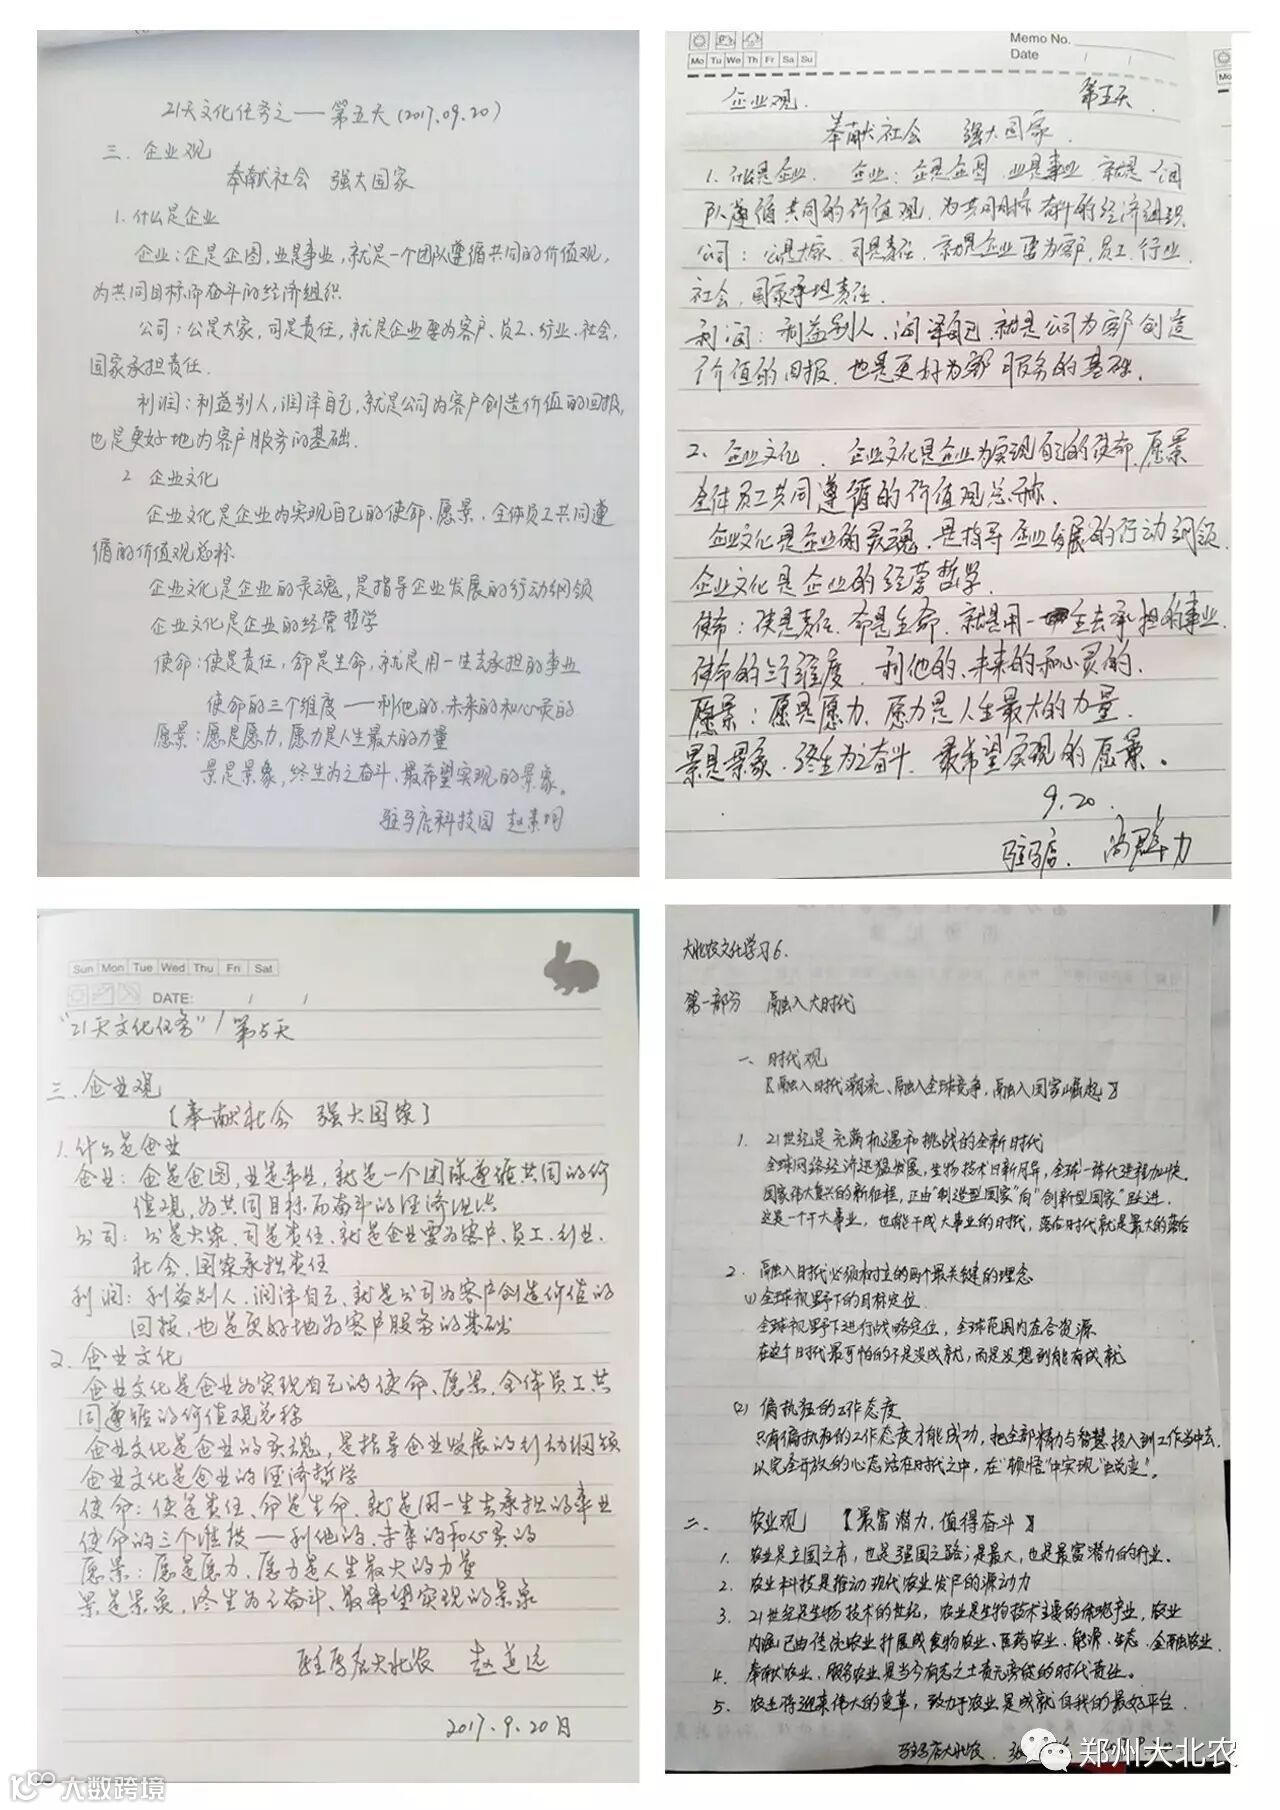 21天文化任务之——第五天(2017.09.20)
三. 企业观
奉献社会 强大国家
1. 什么是企业
企业：企是企图，业是事业，就是一个团队遵循共同的价值观，
为共同目标而奋斗的经济组织
公司：公是大家，司是责任，就是企业要为客户、员工、行业、社会、
国家承担责任.
利润：利益别人，润泽自己，就是公司为客户创造价值的回报，
也是更好地为客户服务的基础.
2 企业文化
企业文化是企业为实现自己的使命、愿景、全体员工共同遵
循的价值观总称.
企业文化是企业的灵魂，是指导企业发展的行动纲领
企业文化是企业的经营哲学
使命：使是责任，命是生命，就是用一生去承担的事业
使命的三个维度——利他的、未来的和心灵的
愿景：愿是愿力，愿力是人生最大的力量
景是景象，终生为之奋斗、最希望实现的景象。
驻马店科技园
Memo No.
Mo Tu We Th Fr Sa Su
Date / /
企业观. 第五天
奉献社会 强大国家
1. 什么是企业. 企业：企是企图 业是事业 就是一个团
队遵循共同的价值观，为共同目标奋斗的经济组织
公司：公是大家 司是责任. 就是企业要为客户, 员工, 行业,
社会, 国家承担责任.
利润：利益别人、润泽自己. 就是公司为客户创造
价值的回报. 也是更好为客户服务的基础.
2、企业文化. 企业文化是企业为实现自己的使命、愿景
全体员工共同遵循的价值观总称.
企业文化是企业的灵魂，是指导企业发展的行动纲领.
企业文化是企业的经营哲学.
使命：使是责任. 命是生命. 就是用一生去承担的事业.
使命的三个维度. 利他的、未来的和心灵的.
愿景：愿是愿力、愿力是人生最大的力量.
景是景象. 终生为之奋斗. 最希望实现的愿景。
9.20.
驻马店.
Sun Mon Tue Wed Thu Fri Sat
DATE: / /
"21天文化任务"/第5天
三. 企业观
〔奉献社会 强大国家〕
1. 什么是企业
企业：企是企图，业是事业，就是一个团队遵循共同的价
值观，为共同目标而奋斗的经济组织
公司：公是大家，司是责任、就是企业要为客户、员工、行业、
社会、国家承担责任
利润：利益别人，润泽自己、就是公司为客户创造价值的
回报，也是更好地为客户服务的基础
2. 企业文化
企业文化是企业为实现自己的使命、愿景、全体员工共
同遵循的价值观总称
企业文化是企业的灵魂，是指导企业发展的行动纲领
企业文化是企业的经济哲学
使命：使是责任、命是生命、就是用一生去承担的事业
使命的三个维度——利他的、未来的和心灵的
愿景：愿是愿力、愿力是人生最大的力量
景是景象、终生为之奋斗、最希望实现的景象
驻马店大北农 赵
2017.9.20日
大北农文化学习6.
第一部分 融入大时代
一、时代观
【融入时代潮流、融入全球竞争，融入国家崛起】
1. 21世纪是充满机遇和挑战的全新时代
全球网络经济迅猛发展，生物技术日新月异，全球一体化进程加快.
国家伟大复兴的新征程，正由"制造型国家"向"创新型国家"跃进.
这是一个干大事业，也能干成大事业的时代，落后时代就是最大的落后
2. 融入时代必须树立的两个最关键的理念
(1) 全球视野下的目标定位
全球视野下进行战略定位，全球范围内整合资源
在这个时代最可怕的不是没成就，而是没想到能有成就
(2) 偏执狂的工作态度
只有偏执狂的工作态度才能成功，把全部精力与智慧投入到工作当中去.
以完全开放的心态活在时代之中，在"顿悟"中实现"蜕变"。
二. 农业观 【最富潜力，值得奋斗】
1. 农业是立国之本，也是强国之路；是最大，也是最富潜力的行业.
2. 农业科技是推动现代农业发展的源动力
3. 21世纪是生物技术的世纪，农业是生物技术主要的体现产业，农业
内涵已由传统农业扩展成食物农业、医药农业、能源、生态、金融农业.
4. 奉献农业、服务农业是当今有志之士责无旁贷的时代责任。
5. 农业将迎来伟大的变革，致力于农业是成就自我的最好平台.
驻马店大北农.
郑州大北农
大数跨境